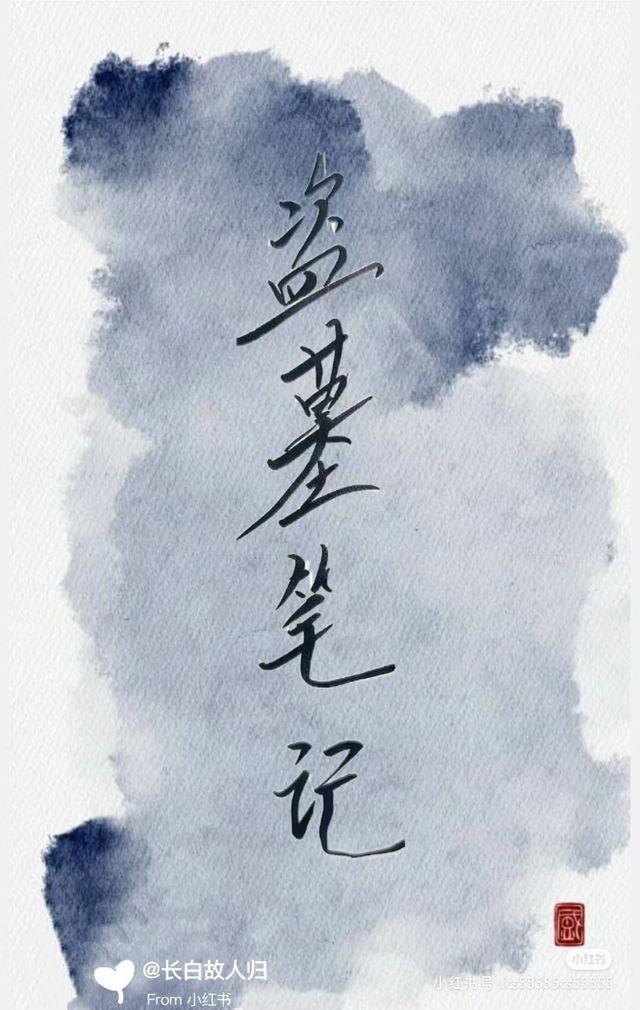 盗墓笔记
@长白故人归
From 小红书
小红书
小红书号 fcs55555cs55555